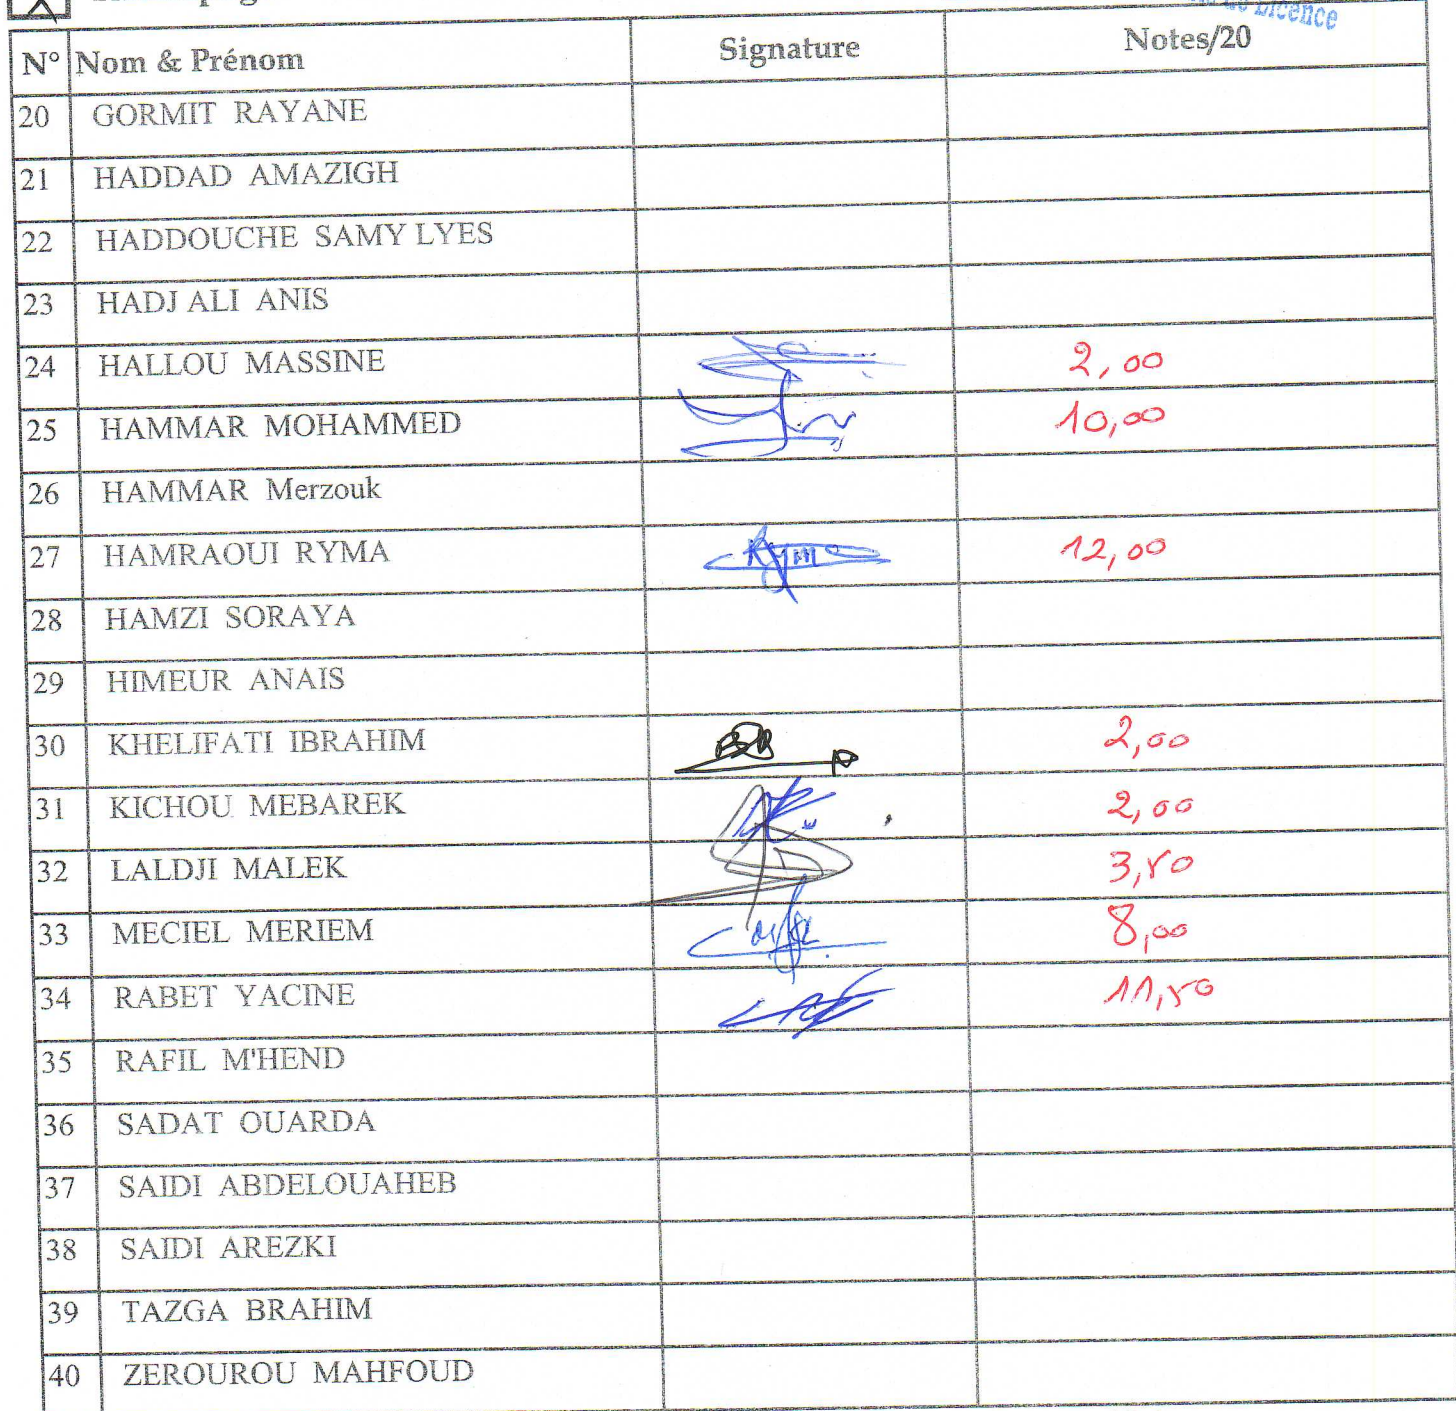 de Licence
N° Nom & Prénom Signature Notes/20
20 GORMIT RAYANE
21 HADDAD AMAZIGH
22 HADDOUCHE SAMY LYES
23 HADJ ALI ANIS
24 HALLOU MASSINE 2,00
25 HAMMAR MOHAMMED 10,00
26 HAMMAR Merzouk
27 HAMRAOUI RYMA Ryma 12,00
28 HAMZI SORAYA
29 HIMEUR ANAIS
30 KHELIFATI IBRAHIM 2,00
31 KICHOU MEBAREK 2,00
32 LALDJI MALEK 3,50
33 MECIEL MERIEM 8,00
34 RABET YACINE 11,50
35 RAFIL M'HEND
36 SADAT OUARDA
37 SAIDI ABDELOUAHEB
38 SAIDI AREZKI
39 TAZGA BRAHIM
40 ZEROUROU MAHFOUD